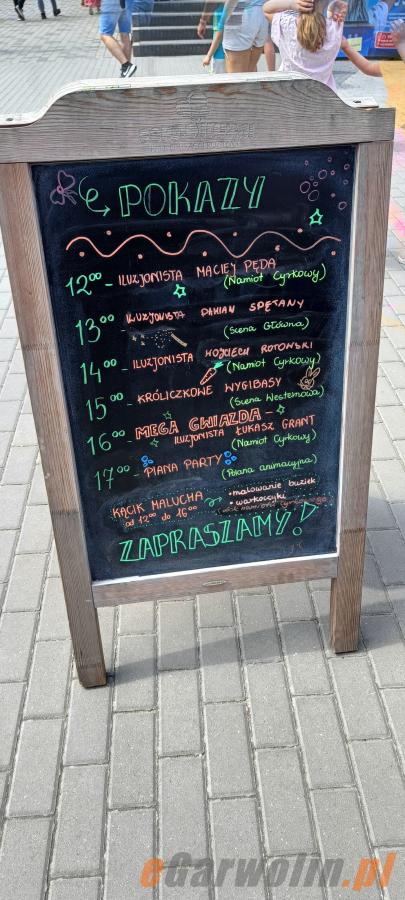 POKAZY
12⁰⁰ - ILUZJONISTA MACIEJ PĘDA
(Namiot Cyrkowy)
13⁰⁰ - ILUZJONISTA DAMIAN SPĘTANY
(Scena Główna)
14⁰⁰ - ILUZJONISTA WOJCIECH ROTOWSKI
(Namiot Cyrkowy)
15⁰⁰ - KRÓLICZKOWE WYGIBASY
(Scena Westernowa)
16⁰⁰ - MEGA GWIAZDA -
ILUZJONISTA ŁUKASZ GRANT
(Namiot Cyrkowy)
17⁰⁰ - PIANA PARTY
(Polana animacyjna)
KĄCIK MALUCHA
od 12⁰⁰ do 16⁰⁰
• malowanie buziek
• warkoczyki
ZAPRASZAMY!
eGarwolin.pl